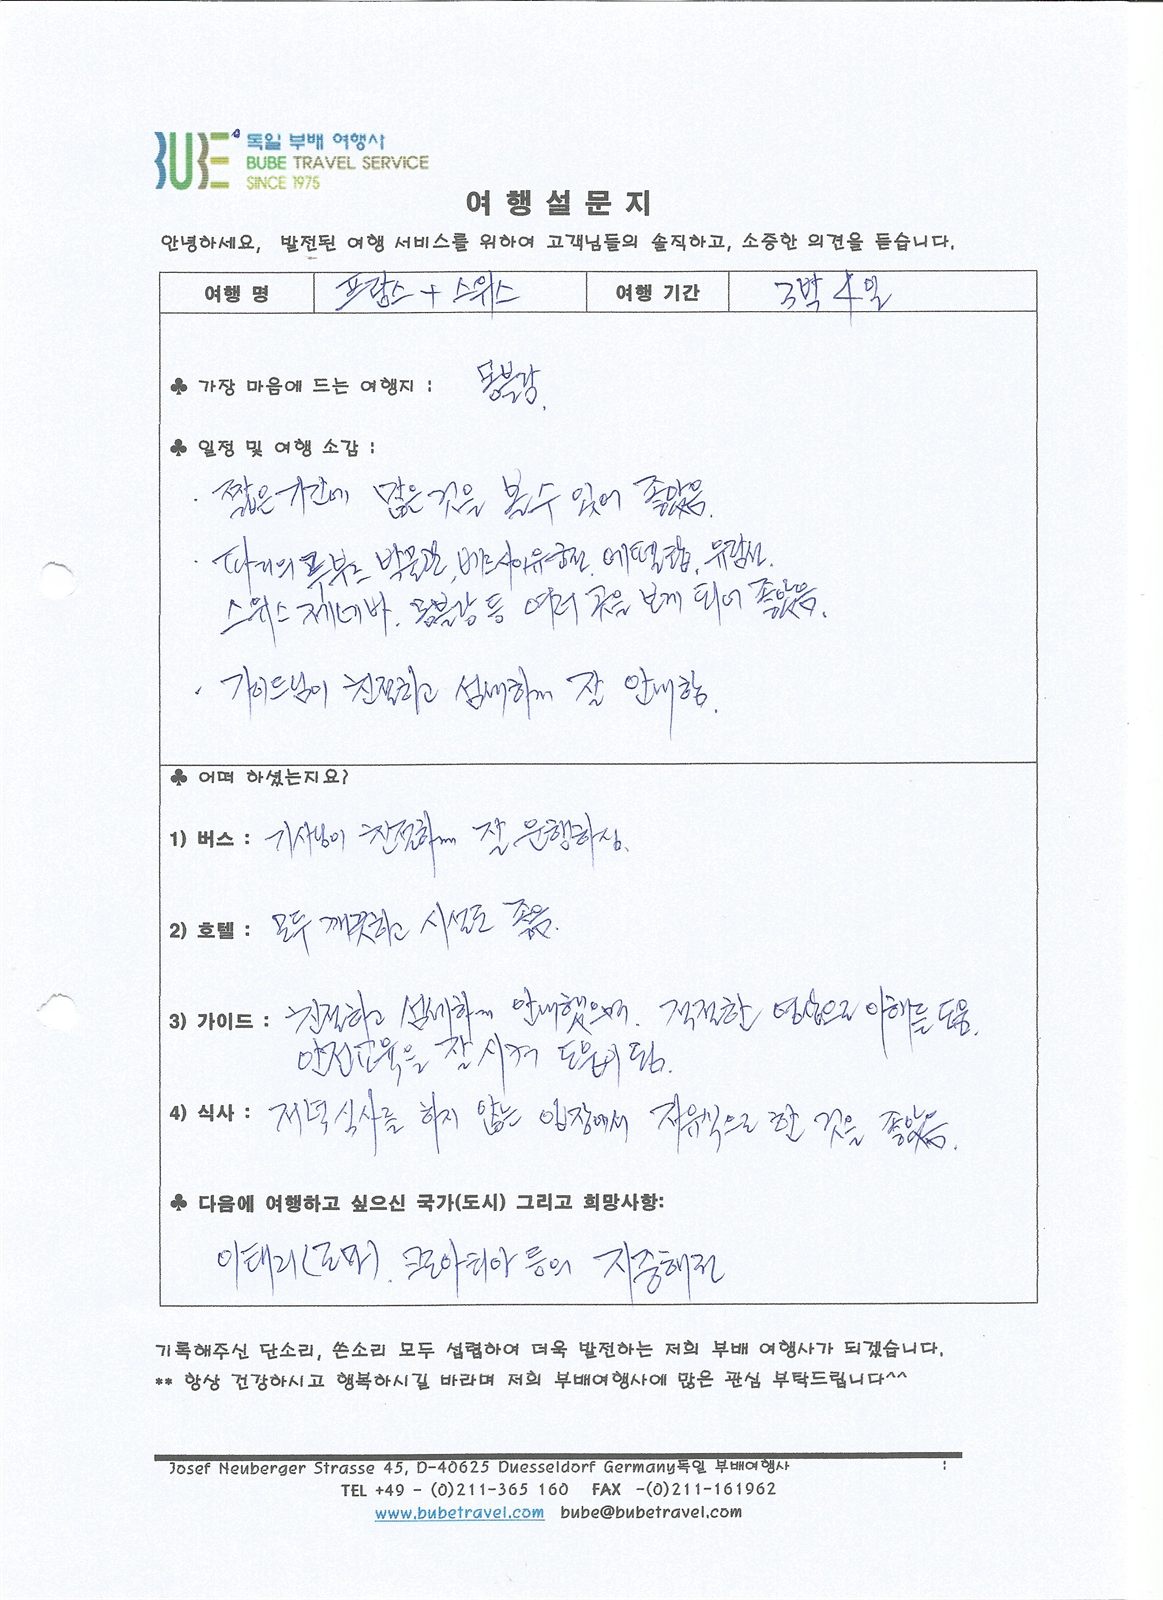 BUBE 독일 부배 여행사
BUBE TRAVEL SERVICE
SINCE 1975
여 행 설 문 지
안녕하세요, 발전된 여행 서비스를 위하여 고객님들의 솔직하고, 소중한 의견을 듣습니다.
여행 명 프랑스 + 스위스 여행 기간 3박 4일
♣ 가장 마음에 드는 여행지 : 몽블랑.
♣ 일정 및 여행 소감 :
· 짧은 기간에 많은 것을 볼 수 있어 좋았음.
· 파리의 루부르 박물관, 베르사이유궁전, 에펠탑, 유람선.
스위스 제네바, 몽블랑 등 여러 곳을 보게 되어 좋았음.
· 가이드님이 친절하고 섬세하게 잘 안내함.
♣ 어떠 하셨는지요?
1) 버스 : 기사님이 친절하게 잘 운행하심.
2) 호텔 : 모두 깨끗하고 시설도 좋음.
3) 가이드 : 친절하고 섬세하게 안내했으며, 적절한 영상으로 이해를 도움.
안전교육을 잘 시켜 도움이 됨.
4) 식사 : 저녁식사를 하지 않는 입장에서 자유식으로 한 것을 좋았음.
♣ 다음에 여행하고 싶으신 국가(도시) 그리고 희망사항:
이태리(로마), 크로아티아 등의 지중해권
기록해주신 단소리, 쓴소리 모두 섭렵하여 더욱 발전하는 저희 부배 여행사가 되겠습니다.
** 항상 건강하시고 행복하시길 바라며 저희 부배여행사에 많은 관심 부탁드립니다^^
Josef Neuberger Strasse 45, D-40625 Duesseldorf Germany독일 부배여행사 :
TEL +49 - (0)211-365 160 FAX -(0)211-161962
www.bubetravel.com bube@bubetravel.com